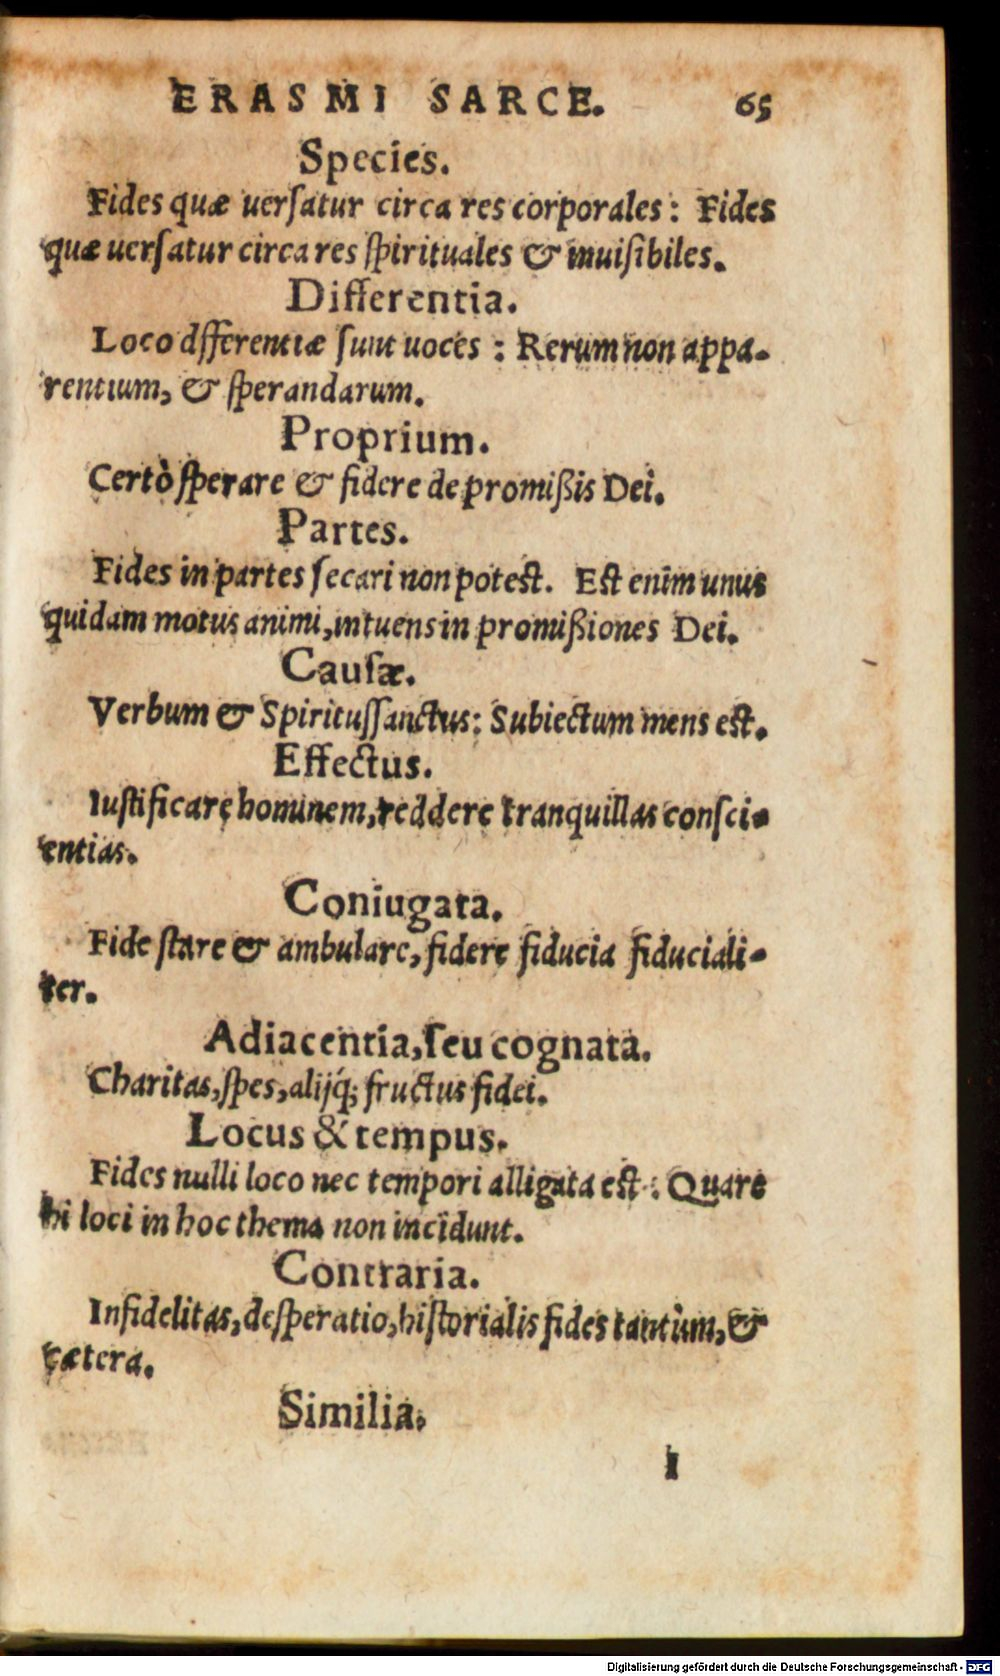 ERASMI SARCE. 65
Species.
Fides quæ uersatur circa res corporales: Fides
quæ uersatur circa res spirituales & inuisibiles.
Differentia.
Loco dfferentiæ sunt uoces: Rerum non appa-
rentium, & sperandarum.
Proprium.
Certò sperare & fidere de promißis Dei.
Partes.
Fides in partes secari non potest. Est enim unus
quidam motus animi, intuens in promißiones Dei.
Causæ.
Verbum & Spiritussanctus: Subiectum mens est.
Effectus.
Iustificare hominem, reddere tranquillas consci-
entias.
Coniugata.
Fide stare & ambulare, fidere fiducia fiduciali-
ter.
Adiacentia, seu cognata.
Charitas, spes, alijq́; fructus fidei.
Locus & tempus.
Fides nulli loco nec tempori alligata est: Quare
hi loci in hoc thema non incidunt.
Contraria.
Infidelitas, desperatio, historialis fides tantùm, &
cætera.
Similia.
I
Digitalisierung gefördert durch die Deutsche Forschungsgemeinschaft - DFG